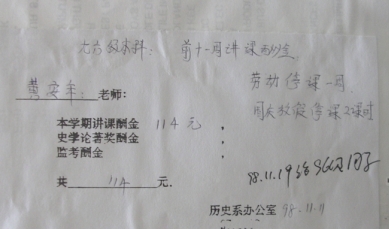 九六级本科: 前十一周讲课
劳动停课一周
黄安年: 老师:
周庆放假停课2课时
本学期讲课酬金 114元,
史学论著奖酬金
监考酬金
98.11.19
共 114 元.
历史系办公室 98.11.11